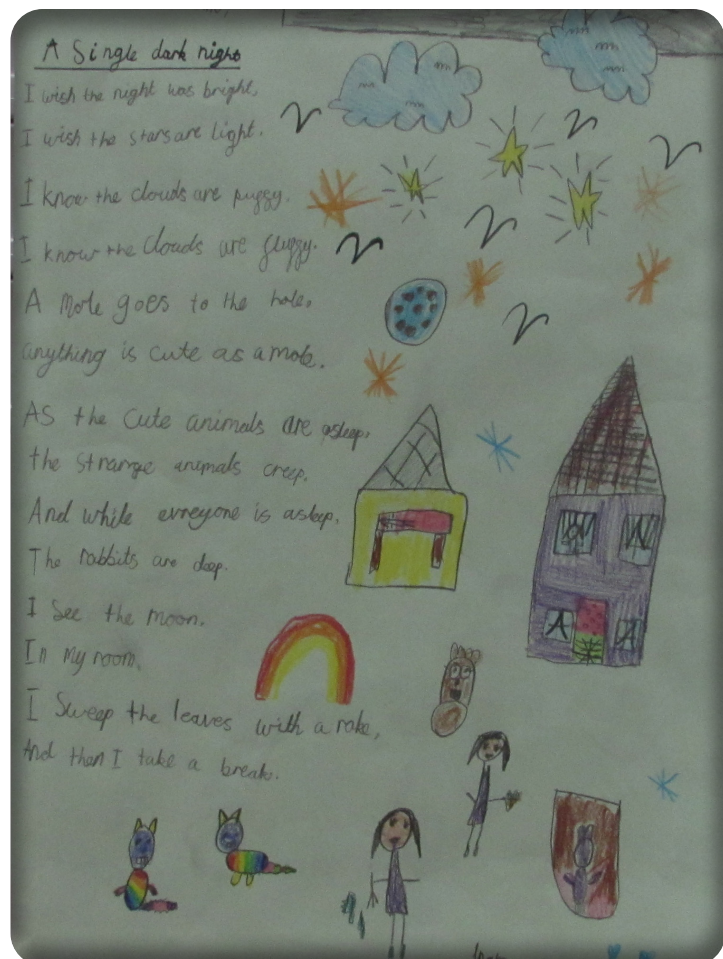 A Single dark night
I wish the night was bright,
I wish the stars are light.
I know the clouds are puffy.
I know the clouds are fluffy.
A mole goes to the hole.
anything is cute as a mole.
As the cute animals are asleep,
the strange animals creep.
And while evreyone is asleep,
The rabbits are deep.
I See the moon.
In my room.
I Sweep the leaves with a rake,
And then I take a break.